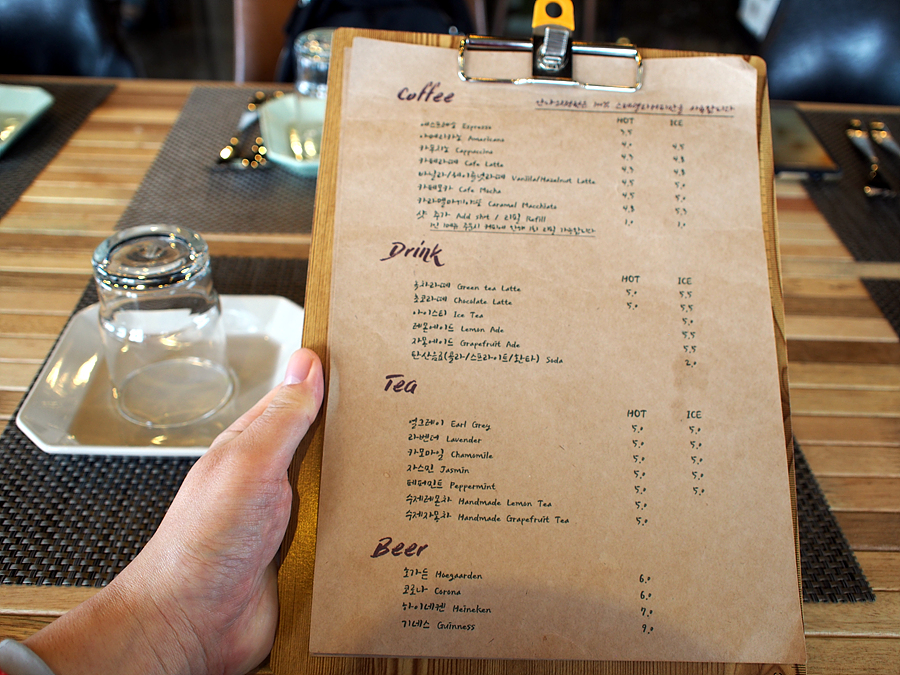 Coffee
HOT ICE
에스프레소 Espresso 3.5
아메리카노 Americano 4.0 4.5
카푸치노 Cappuccino 4.3 4.8
카페라떼 Cafe Latte 4.3 4.8
바닐라/헤이즐넛라떼 Vanilla/Hazelnut Latte 4.5 5.0
카페모카 Cafe Mocha 4.5 5.0
카라멜마끼아또 Caramel Macchiato 4.8 5.3
샷 추가 Add shot / 리필 Refill 1.0 1.0
Drink
HOT ICE
녹차라떼 Green tea Latte 5.0 5.5
초코라떼 Chocolate Latte 5.0 5.5
아이스티 Ice Tea 5.0
레몬에이드 Lemon Ade 5.5
자몽에이드 Grapefruit Ade 5.5
탄산음료(콜라/스프라이트/환타) Soda 2.0
Tea
HOT ICE
얼그레이 Earl Grey 5.0 5.0
라벤더 Lavender 5.0 5.0
카모마일 Chamomile 5.0 5.0
자스민 Jasmin 5.0 5.0
페퍼민트 Peppermint 5.0 5.0
수제레몬차 Handmade Lemon Tea 5.0
수제자몽차 Handmade Grapefruit Tea 5.0
Beer
호가든 Hoegaarden 6.0
코로나 Corona 6.0
하이네켄 Heineken 7.0
기네스 Guinness 9.0